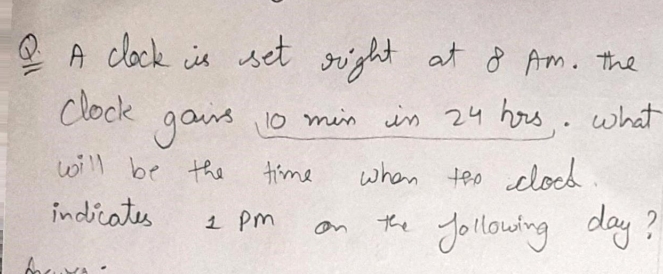 Q. A clock is set right at 8 Am. the
clock gains 10 min in 24 hrs. what
will be the time when clock.
indicates 1 pm on the following day?